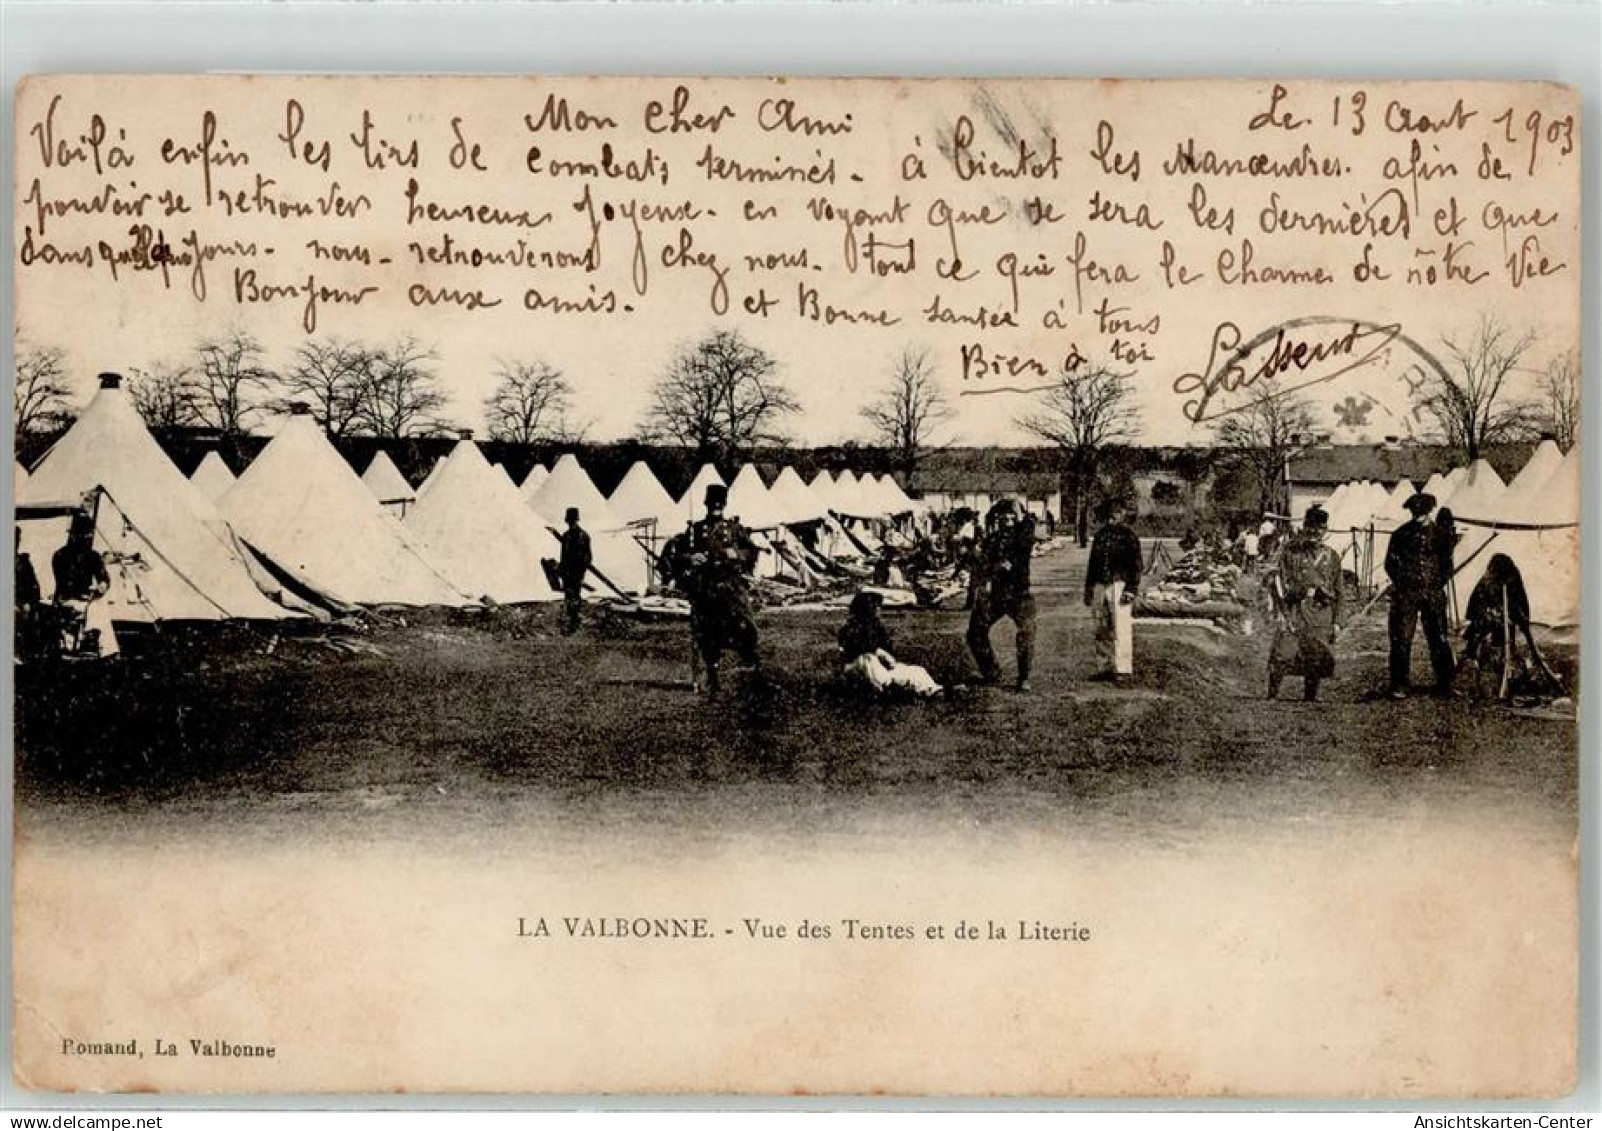 Le 13 Aout 1903
Mon Cher Ami
Voilà enfin les tirs de combats terminés - à bientot les Manœuvres. afin de
pouvoir se retrouver heureux Joyeux - en voyant que se sera les dernières et que
dans jours - nous - retrouverons chez nous. Tout ce qui fera le Charme de nôtre Vie
Bonjour aux amis. et Bonne santée à tous
Bien à toi
LA VALBONNE. - Vue des Tentes et de la Literie
Romand, La Valbonne
www.ansichtskarten-center.com
Ansichtskarten-Center